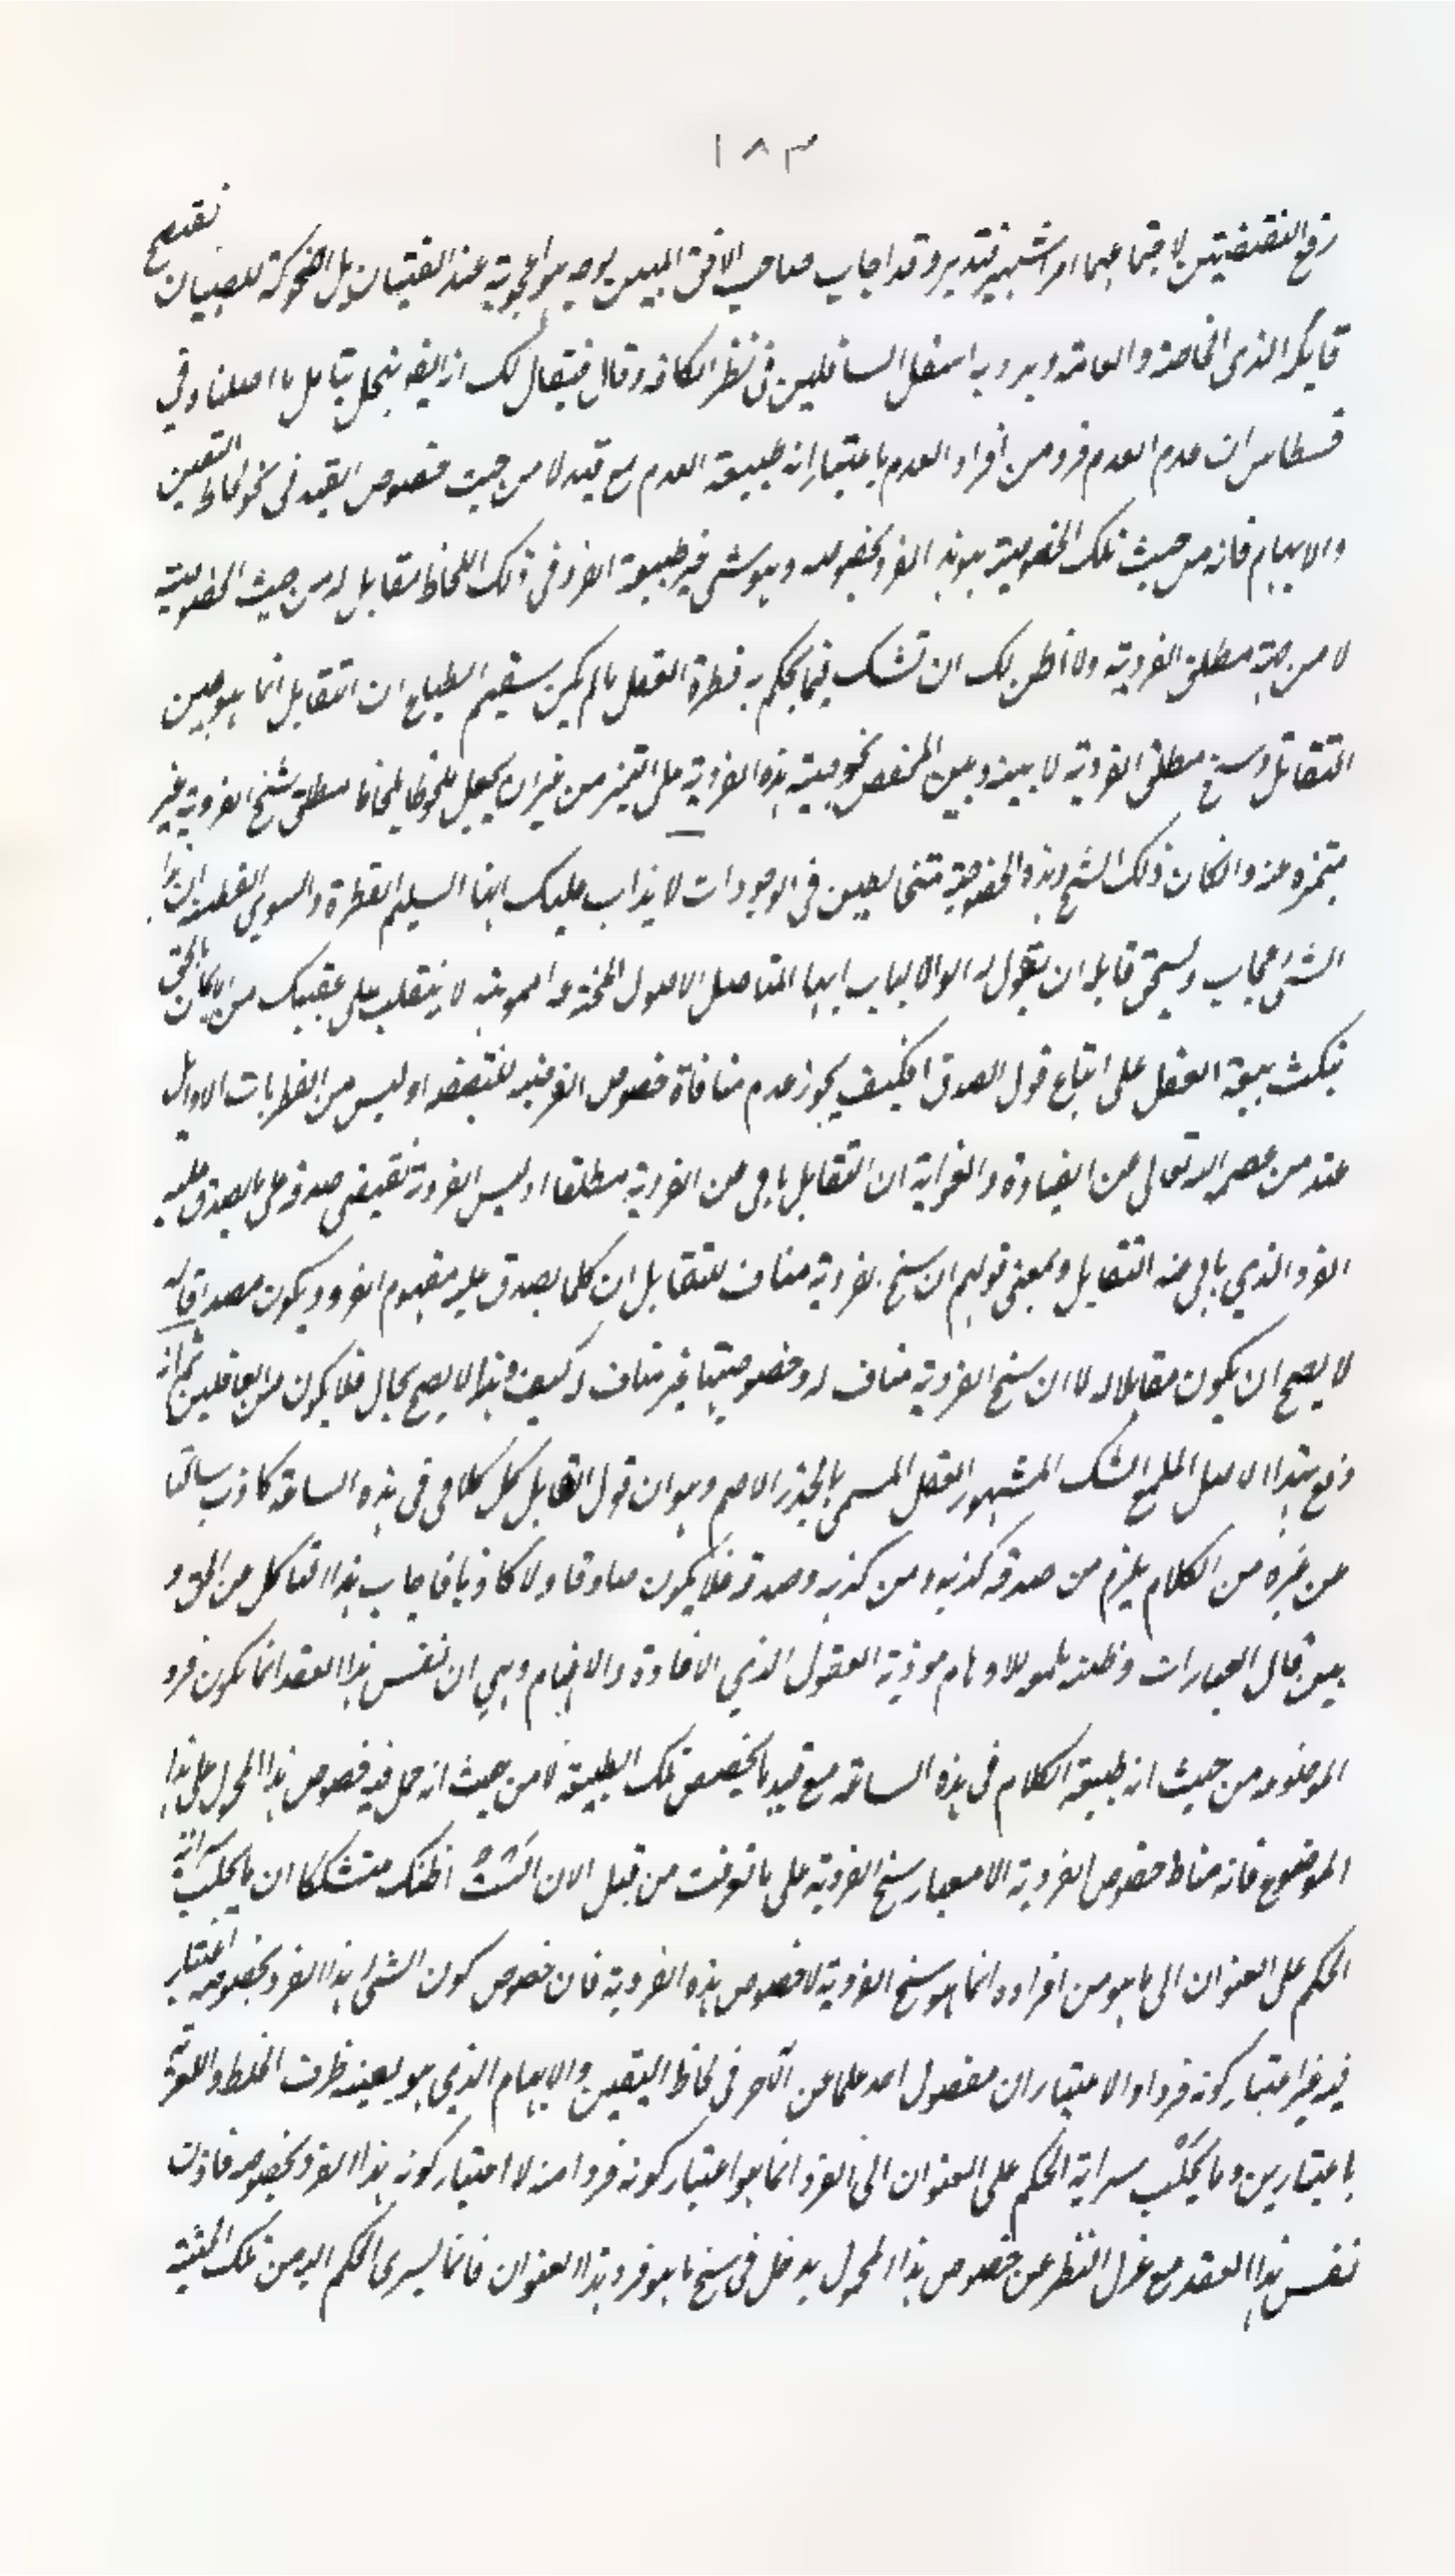 ١٨٣
رفع النقيضين لا جتماعهما امر اشبهه فتدبر وقد اجاب صاحب الافق المبين بوجه هو اعجوبة عند الفتيان بل اضحوكة للصبيان تقبيح
قايله الذي الخاصة والعامة ويرد به اسفل السافلين في نظر الكافة وقال فيقال لك انه ايضا ينحل بتامل ما اصلناه في
قسطاس ان عدم العدم فرد من افراد العدم باعتبار انه طبيعة العدم مع قيد لا من حيث خصوص القيد في نحو لحاظ التعين
والابهام فانه من حيث تلك الخصوصية هو هذا الفرد بخصوصه وهو شيء غير طبيعة الفرد في ذلك اللحاظ مقابل له من حيث الخصوصية
لا من جهة مطلق الفردية ولا اظن بك ان تشك فيما يحكم به فطرة العقل ما لم يكن سقيم الطباع ان التقابل انما هو بين
التقابل وسنخ مطلق الفردية لا بينه وبين المخصص بخصوصية هذه الفردية على التميز من غير ان يجعل ملحوظا بلحاظ مطلق سنخ الفردية غير
متميزه عنه وان كان ذلك السنخ وهذه الخصوصية متخالعين في الوجودات لا يذهب عليك ايها السليم الفطرة والسوي الفطنة ان هذا
الشيء عجاب ويستحق قايله ان يقول له اولو الالباب ايها المتاصل الاصول المخترعة المموهة لا ينقلب على عقبيك من الايمان بالحق
نكث بيعة العقل على اتباع قول الصدق افكيف يجوز عدم منافاة خصوص الفرد منه لنقيضه اوليس من الفطريات الاوايل
عند من عصمه الله تعالى عن الغباوة والغواية ان التقابل يابى عن الفردية مطلقا اوليس الفردية نقيض صدقه على ما يصدق عليه
الفرد الذي يابى عنه التقابل ومعنى قولهم ان سنخ الفردية مناف للتقابل ان كلما يصدق عليه مفهوم الفرد ويكون مصداقا له
لا يصح ان يكون مقابلا له لا ان سنخ الفردية مناف له وخصوصيتها غير مناف له كيف وهذا لا يصح بحال فلا يكون من الغافلين ثم انه
دفع بهذا الاصل الملمع الشك المشهور العقل المسمى بالجذر الاصم وهو ان قول القايل كل كلامي في هذه الساعة كاذب ساكتا
عن غيره من الكلام يلزم من صدقه كذبه ومن كذبه وصدقه فلا يكون صادقا ولا كاذبا فاجاب هذا الناكل عن الحق و
بين قال العبارات وظلمة ملهو للاوهام موذية العقول الذي الافادة والافهام وهي ان نفس هذا العقد انما يكون فرد
الموضوعه من حيث انه طبيعة الكلام في هذه الساعة مع قيد ما يخصص تلك الطبيعة لا من حيث انه حمل فيه خصوص هذا المحمول على هذا
الموضوع فانه مناط خصوص الفردية لا معيار سنخ الفردية على ما تعرفت من قبل الان الست اظنك متشككا ان ما يجلب سراية
الحكم على العنوان الى ما هو من افراده انما هو سنخ الفردية لا خصوص هذه الفردية فان خصوص كون الشيء هذا الفرد بخصوصه اعتبار
فيه غير اعتبار كونه فردا والاعتباران مفصول احدهما عن الآخر في لحاظ التعين والابهام الذي هو بعينه ظرف الخلط والتعرية
باعتبارين وما يجلب سراية الحكم على العنوان الى الفرد انما هو اعتبار كونه فردا منه لا اعتبار كونه هذا الفرد بخصوصه فاذن
نفس هذا العقد مع عزل النظر عن خصوص هذا المحمول يدخل في سنخ ما هو فرد هذا العنوان فانما يسري الحكم اليه من تلك الحيثية